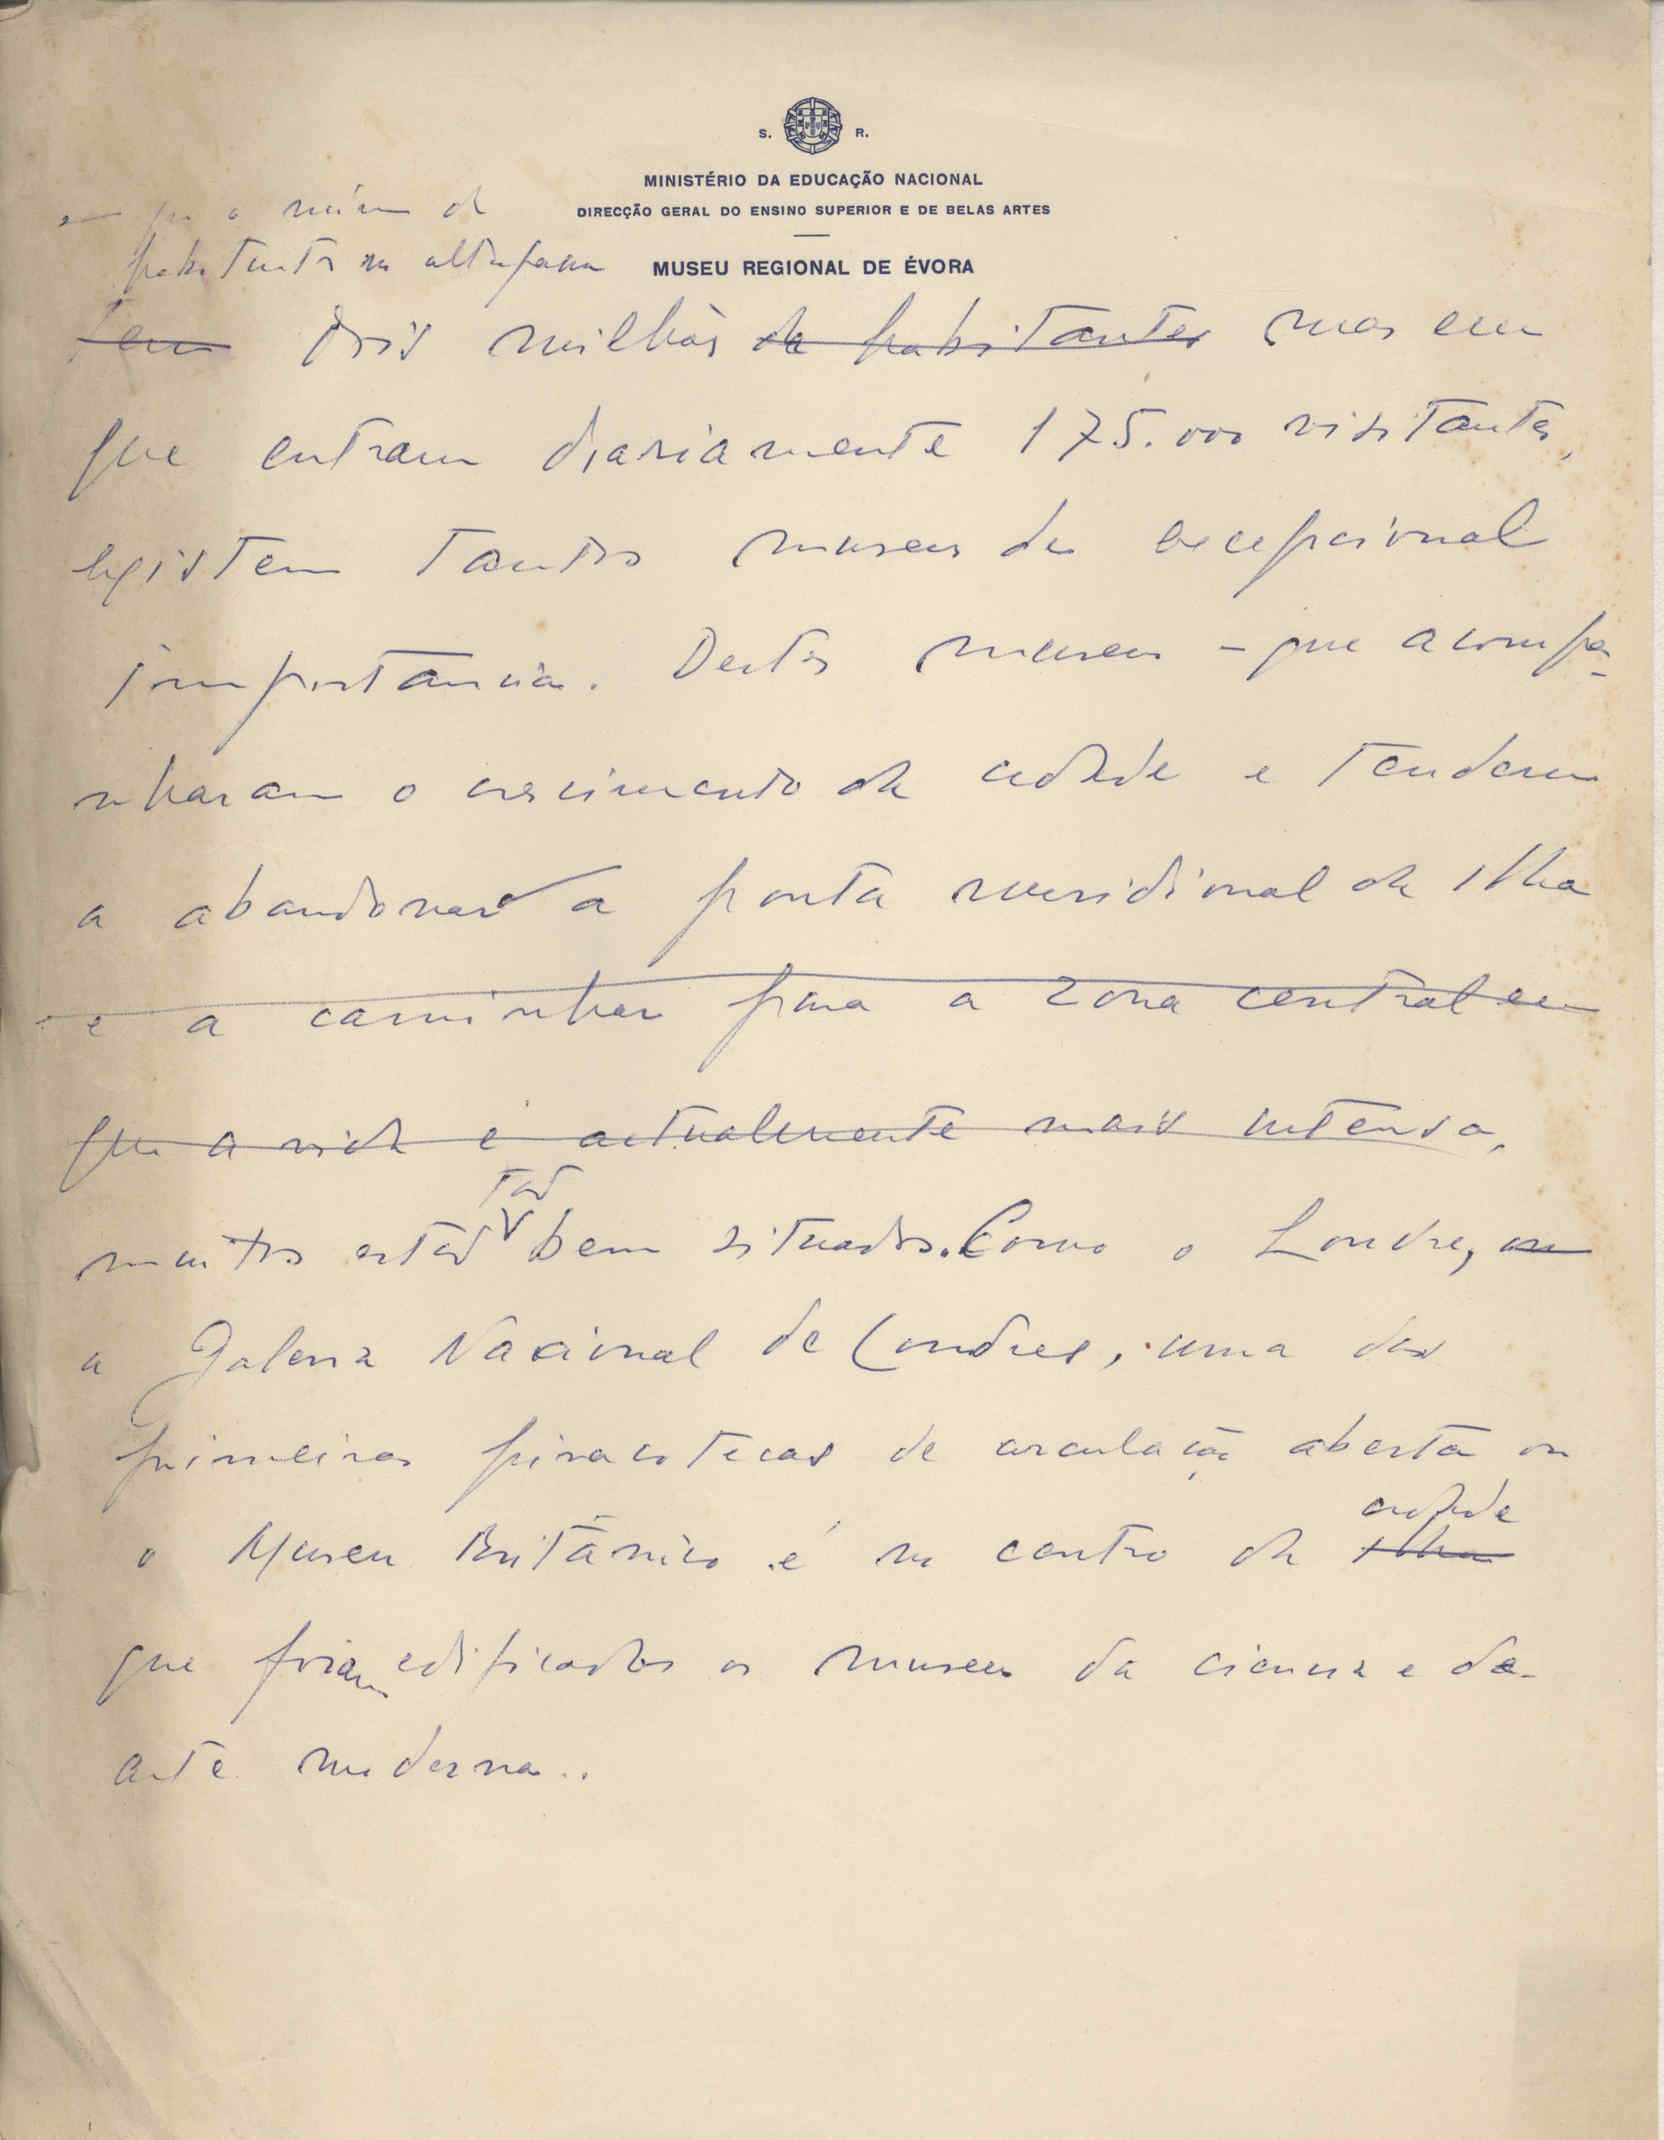 S. R.
MINISTÉRIO DA EDUCAÇÃO NACIONAL
DIRECÇÃO GERAL DO ENSINO SUPERIOR E DE BELAS ARTES
MUSEU REGIONAL DE ÉVORA
em que o número de
habitantes não ultrapassa
Tem dois milhões de habitantes mas em
que entram diariamente 175.000 visitantes,
existem tantos museus de excepcional
importância. Destes museus - que acompa-
nharam o crescimento da cidade e tendem
a abandonar a ponta meridional da Ilha
e a caminhar para a zona central em
que a vida é actualmente mais intensa,
muitos estão tão bem situados. Como o Louvre, ou
a Galeria Nacional de Londres, uma das
primeiras pinacotecas de circulação aberta ou
o Museu Britânico é no centro da Ilha cidade
que foram edificados os museus da ciencia e da
arte moderna..